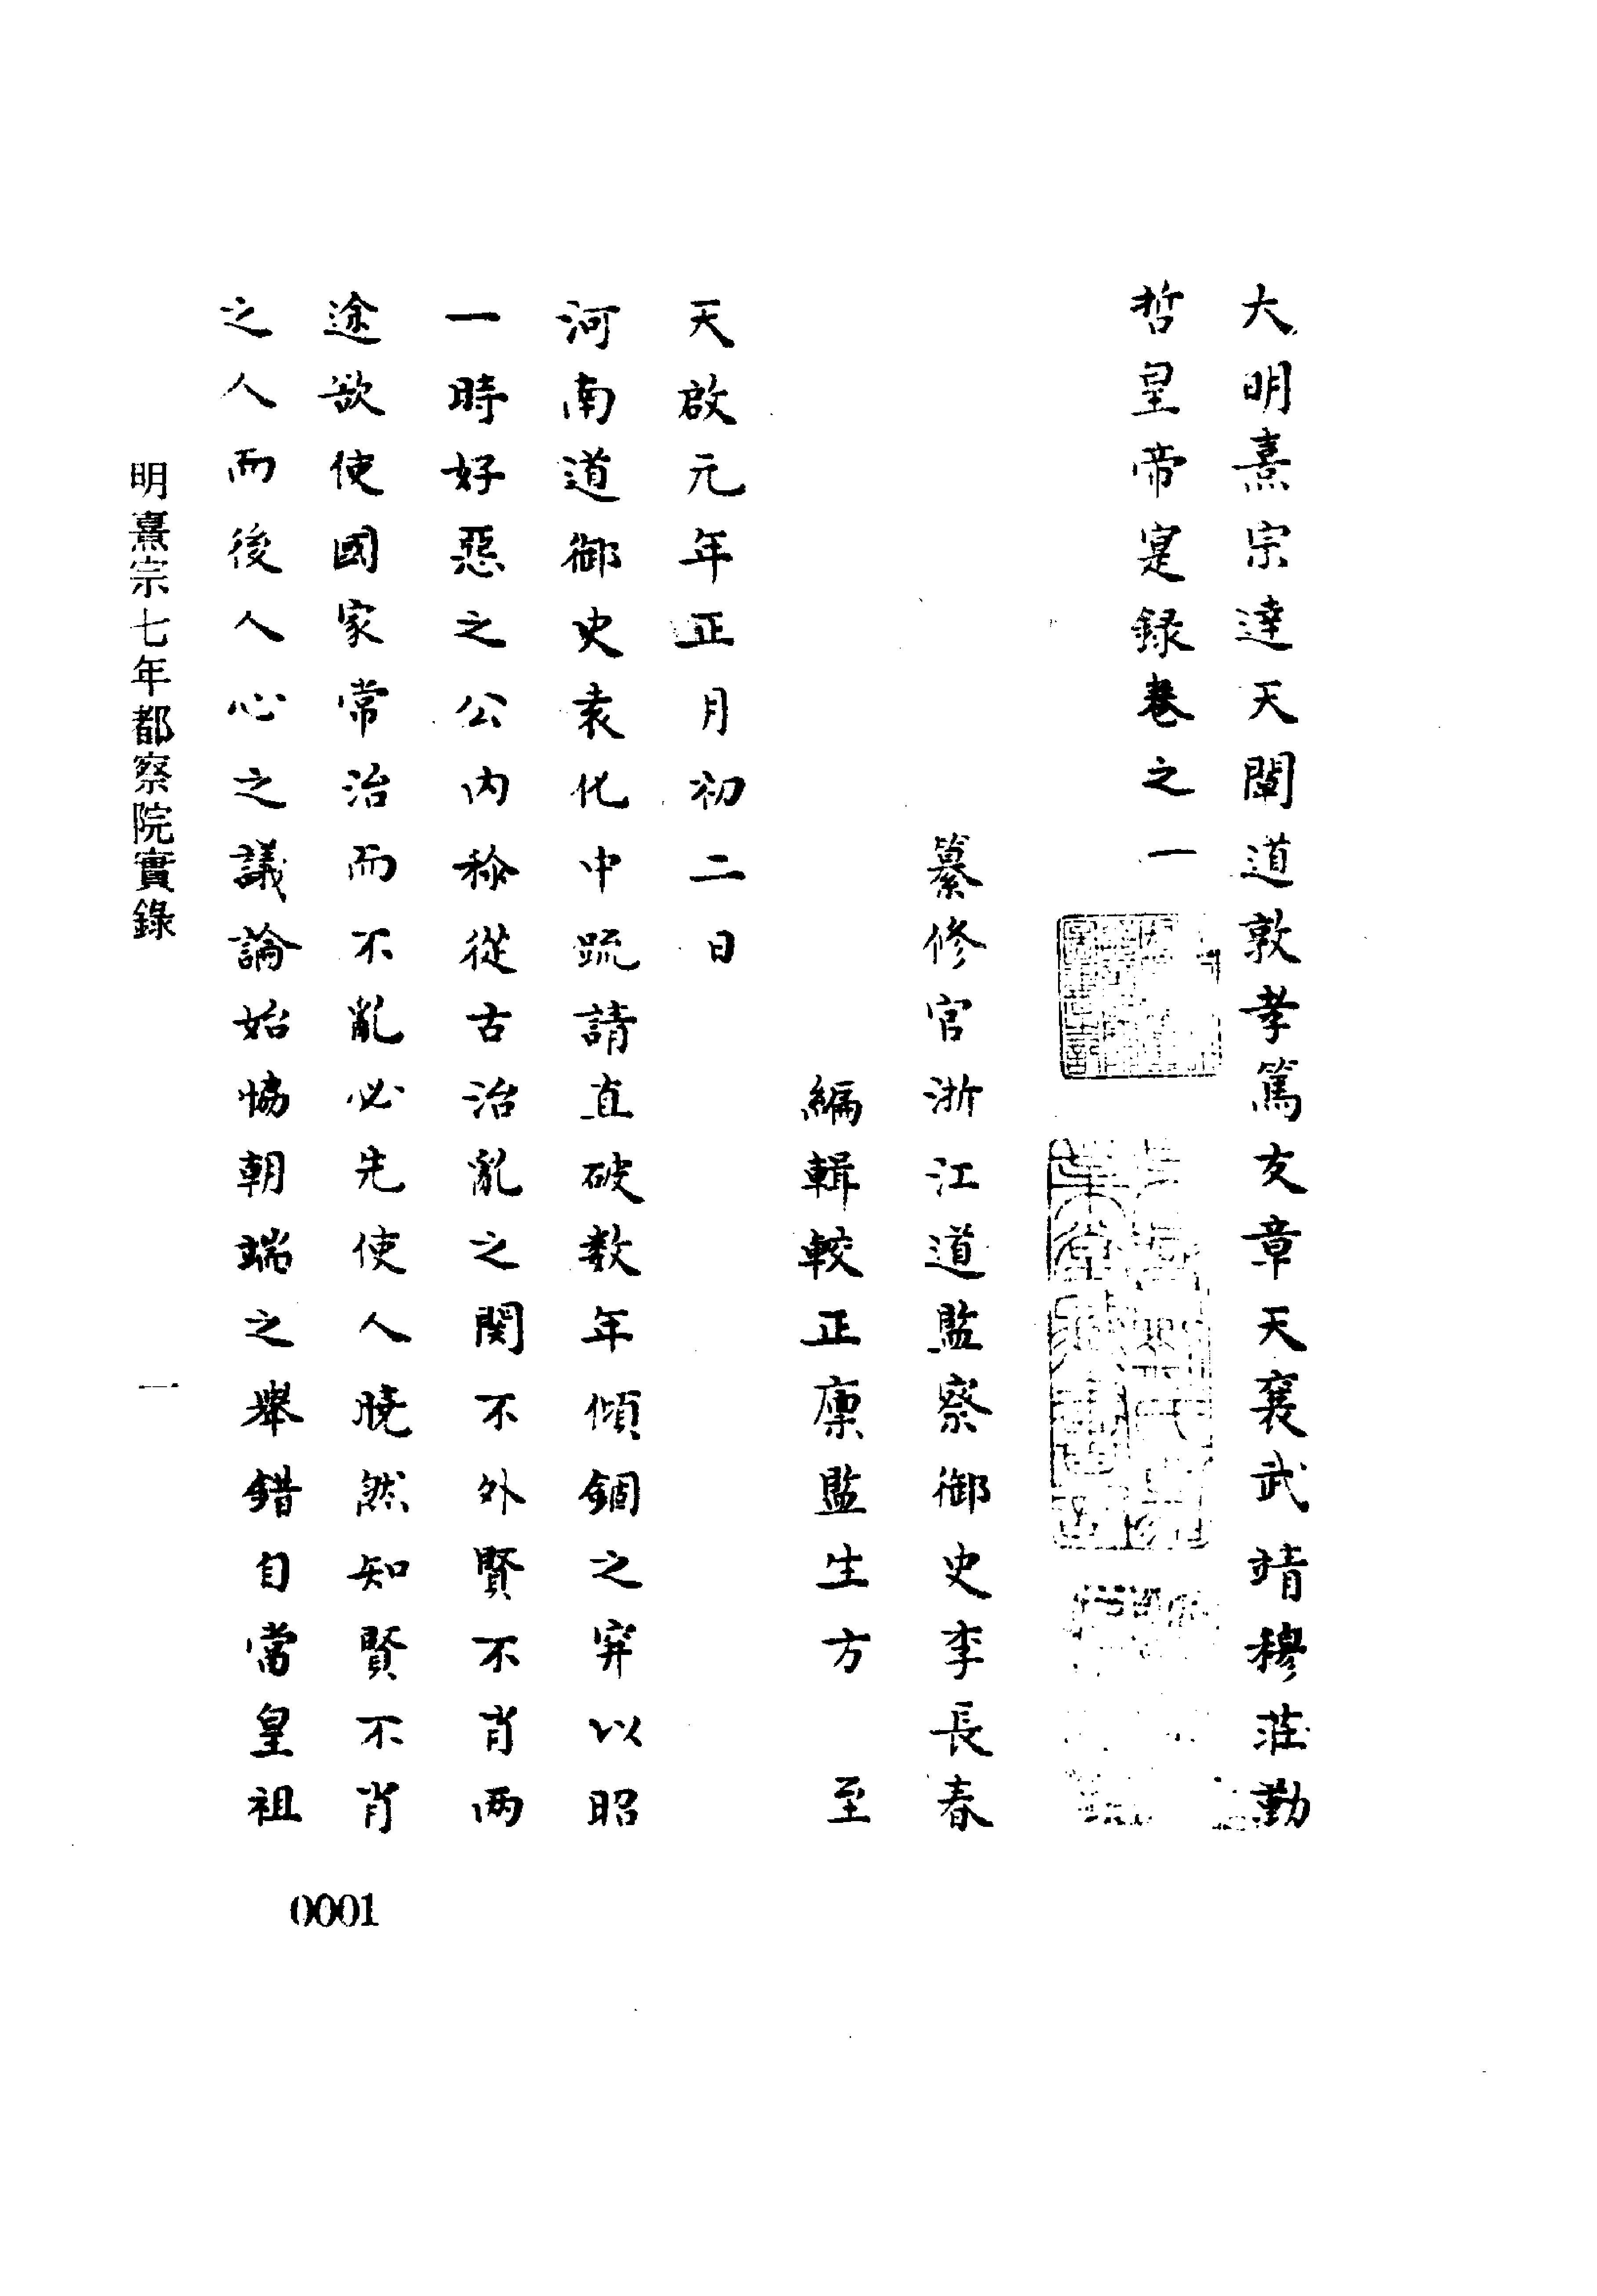 大明熹宗達天闡道敦孝篤友章天襄武靖穆莊勤
哲皇帝寔録巻之一
纂修官浙江道監察御史李長春
編輯較正廩監生方 至
天啟元年正月初二日
河南道御史袁化中疏請直破数年傾錮之穽以昭
一時好惡之公内称從古治亂之関不外賢不肖两
途欲使國家常治而不亂必先使人曉然知賢不肖
之人而後人心之議論始協朝端之舉錯自當皇祖
明熹宗七年都察院實錄
一
0001